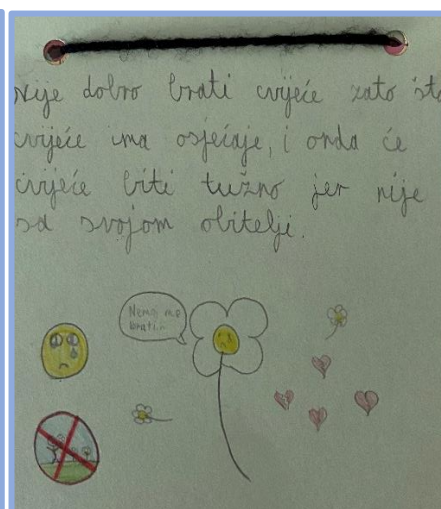 Nije dobro brati cvijeće zato što
cvijeće ima osjećaje, i onda će
cvijeće biti tužno jer nije
sa svojom obitelji.
Nemoj me
brati...